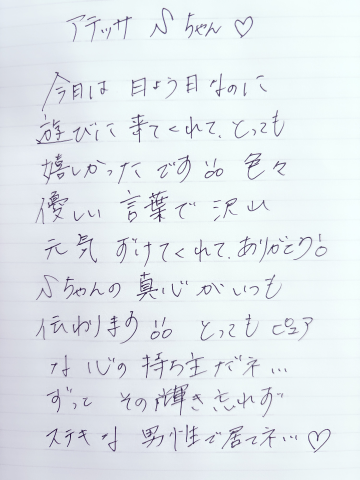 アテッサ Nちゃん♡
今日は 日よう日なのに
遊びに 来てくれて、とっても
嬉しかったです!! 色々
優しい 言葉で 沢山
元気 ずけてくれて、ありがとう!
Nちゃんの 真心がいつも
伝わります!! とってもピュア
な心の持ち主だネ…
ずっと その輝き忘れず
ステキな 男性で居てネ…♡